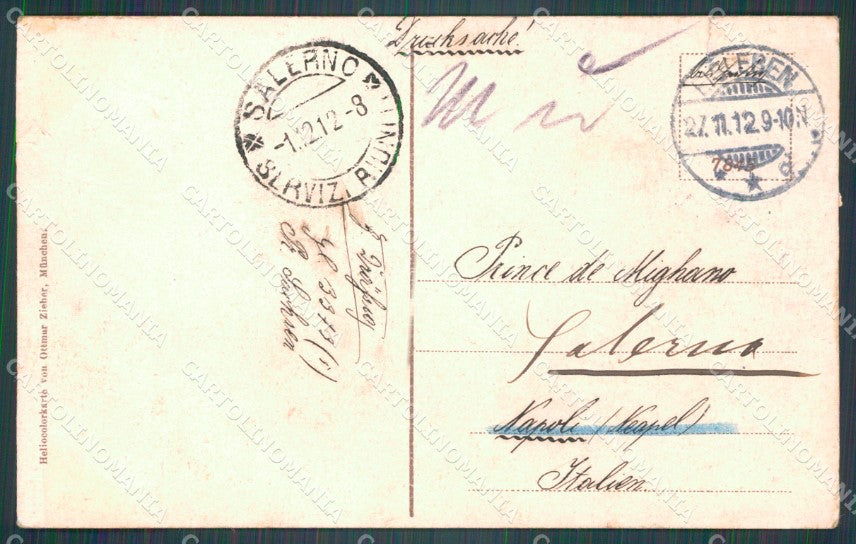 Drucksache!
SALERNO
RIUNITI
SERVIZI
-1.12.12-8
27.11.12.9-10.N.
d
Prince de Mighano
Salerno
Napoli (Neapel)
Italien.
Heliocolorkarte von Ottmar Zieher, München.
CARTOLINOMANIA